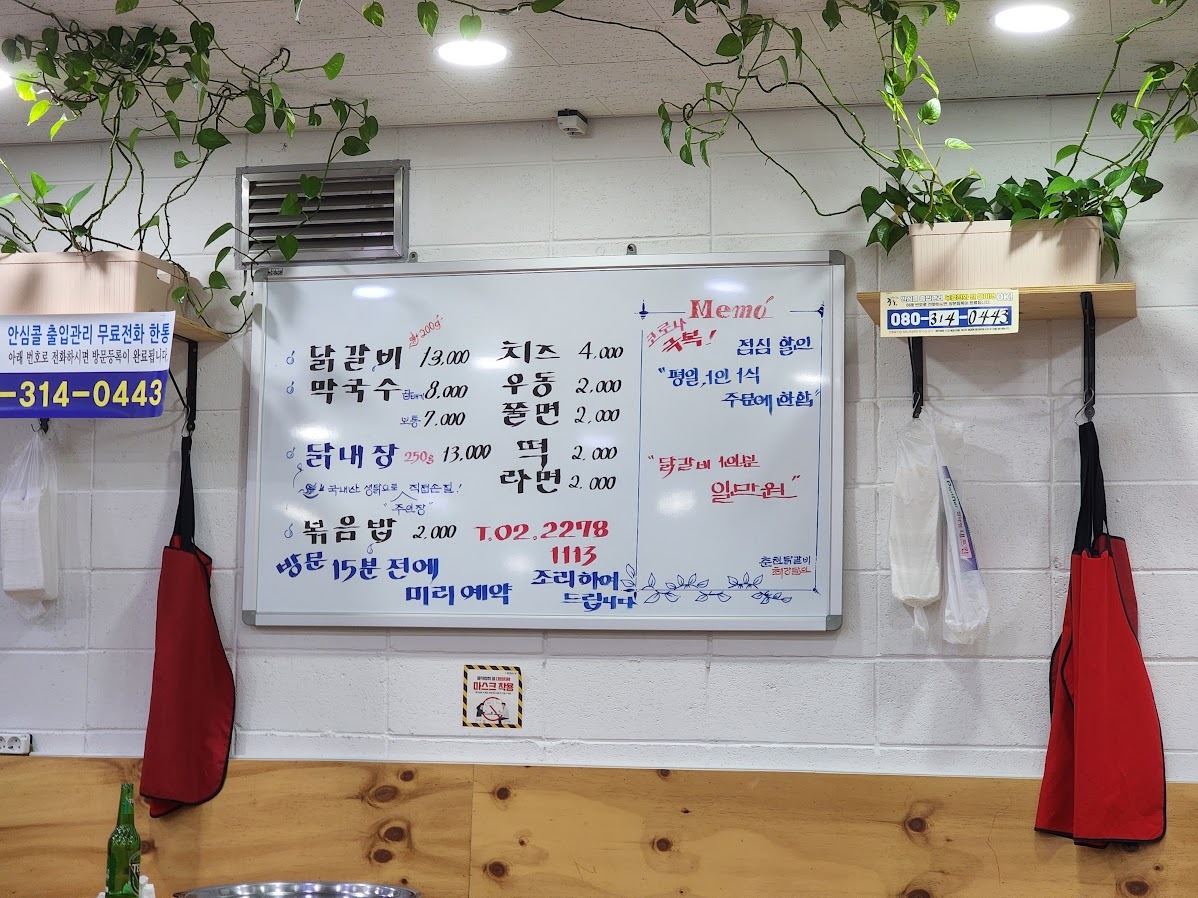 안심콜 출입관리 무료전화 한통
아래 번호로 전화하시면 방문등록이 완료됩니다
-314-0443
닭갈비 200g 13,000
막국수 곱빼기 8,000
보통 7,000
닭내장 250g 13,000
국내산 생닭으로 직접손질!
"주인장"
볶음밥 2,000
치즈 4,000
우동 2,000
쫄면 2,000
떡 2,000
라면 2,000
T.02.2278
1113
방문 15분 전에
미리 예약
조리하여
드립니다!
Memo
코로나
극복!
점심 할인
"평일, 1인 1식
주문에 한함"
"닭갈비 1인분
일만원"
춘천닭갈비
안심콜 출입관리
OK!
080-314-0443
마스크 착용